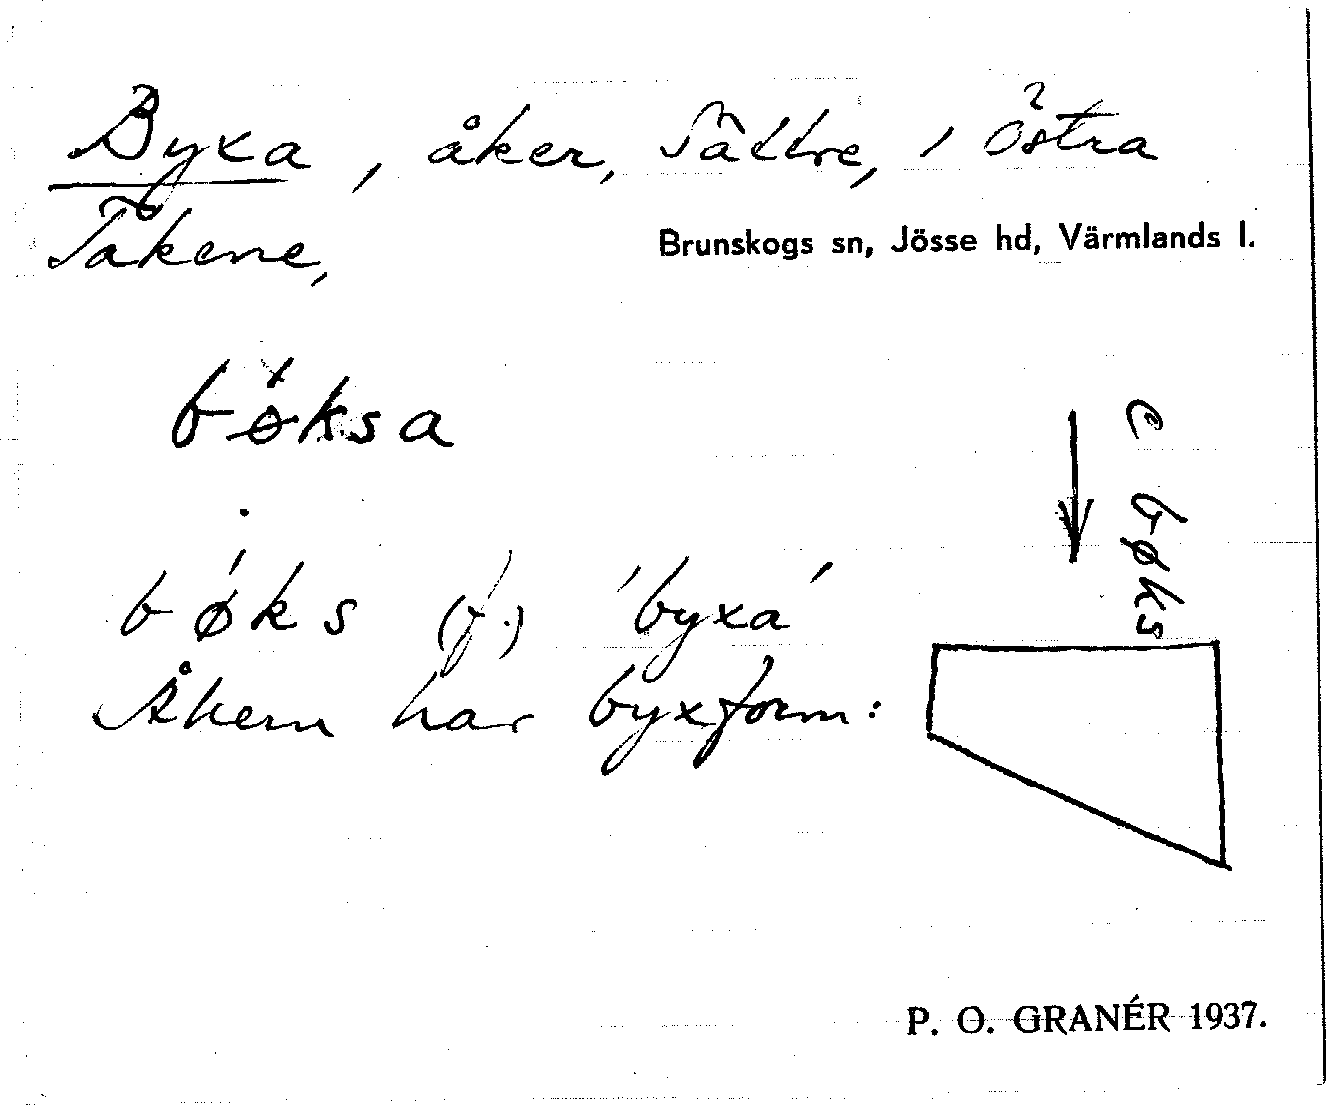 Byxa, åker, Sättre, i Östra
Takene,
Brunskogs sn, Jösse hd, Värmlands l.
bǿksa
bǿks (f.) 'byxa'
bøks
Åkern har byxform:
P. O. GRANÉR 1937.